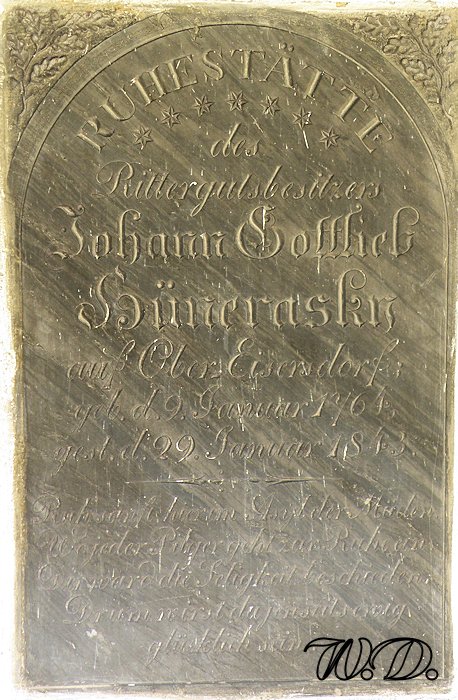 RUHESTÄTTE
des
Rittergutsbesitzers
Johann Gottlieb
Hünerasky
auß Ober Eisersdorf;
geb. d. 9. Januar 1764,
gest. d. 29. Januar 1843.
Ruh sanft hier im Asyl der Müden
Wo jeder Pilger geht zur Ruhe ein
Dir ward die Seligkeit beschieden
Drum wirst du jenseits ewig
glücklich sein
W.D.